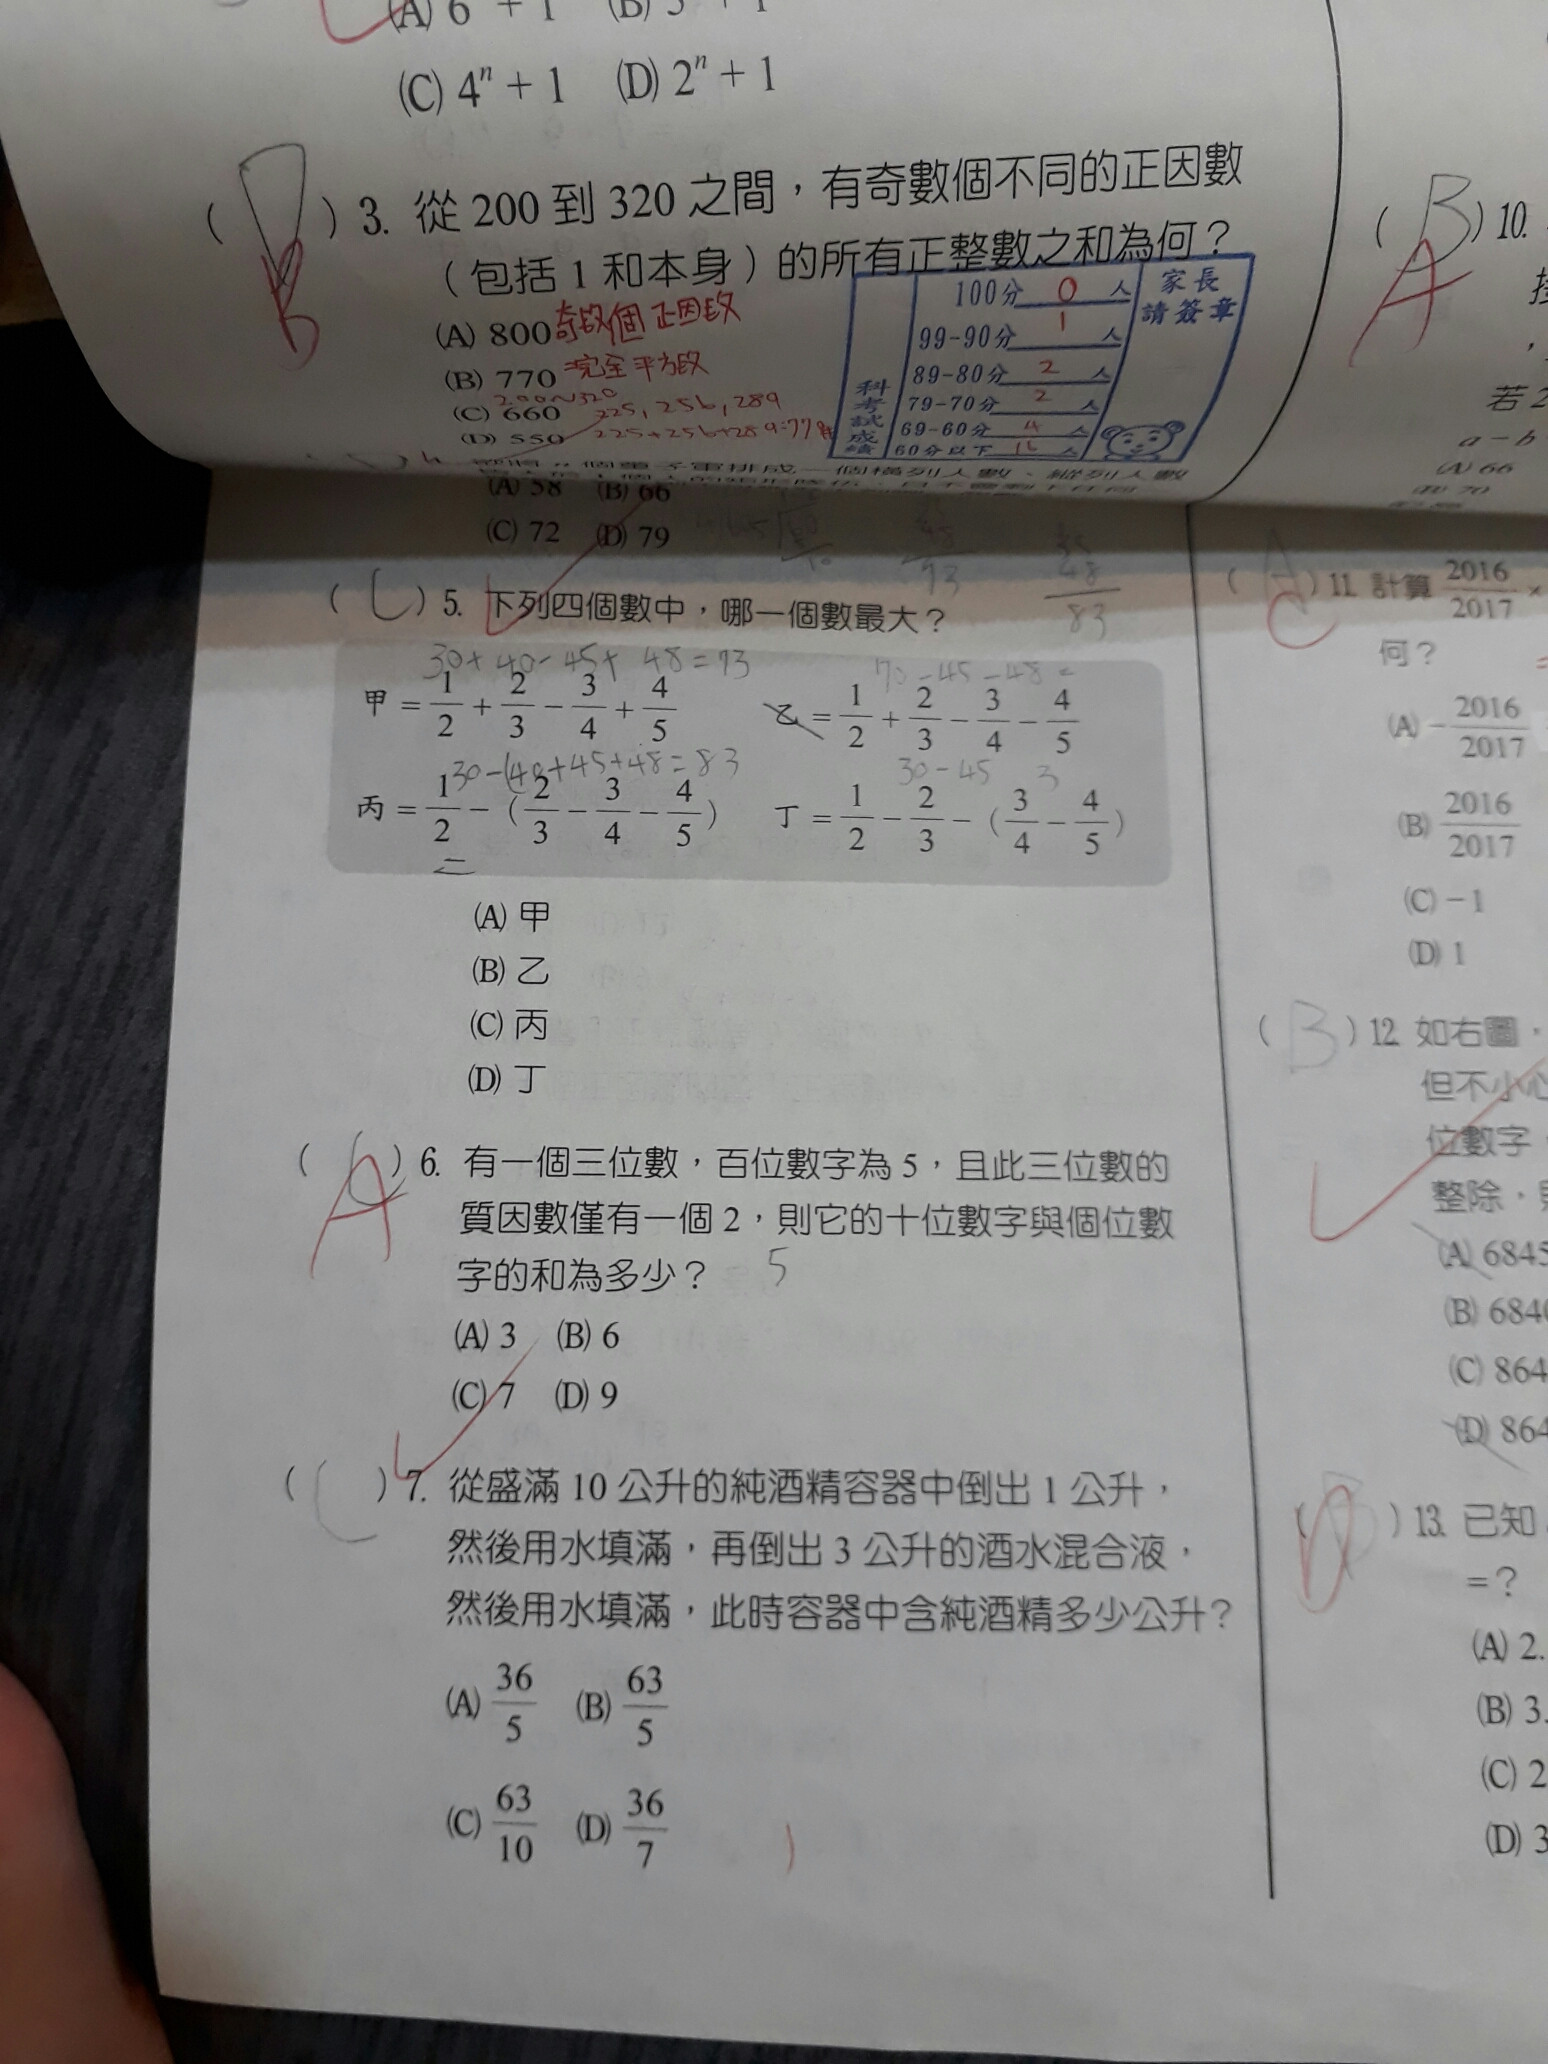 (C) 4ⁿ + 1 (D) 2ⁿ + 1
( ) 3. 從 200 到 320 之間，有奇數個不同的正因數
（包括 1 和本身）的所有正整數之和為何？
B
(A) 800 奇数個正因数
(B) 770 完全平方数
200~320
(C) 660 225, 256, 289
(D) 550 225+256+289=770
科考試成績
100分 0 人
99-90分 1 人
89-80分 2 人
79-70分 2 人
69-60分 4 人
60分以下 16 人
家長
請簽章
(A) 58 (B) 66
(C) 72 (D) 79
93
48
83
( C ) 5. 下列四個數中，哪一個數最大？
30+40-45+48=73
70-45-48=
甲 = 1/2 + 2/3 - 3/4 + 4/5 乙 = 1/2 + 2/3 - 3/4 - 4/5
30-(40+45+48=83
30-45 3
丙 = 1/2 - ( 2/3 - 3/4 - 4/5 ) 丁 = 1/2 - 2/3 - ( 3/4 - 4/5 )
(A) 甲
(B) 乙
(C) 丙
(D) 丁
( A ) 6. 有一個三位數，百位數字為 5，且此三位數的
質因數僅有一個 2，則它的十位數字與個位數
字的和為多少？ 5
(A) 3 (B) 6
(C) 7 (D) 9
( C ) 7. 從盛滿 10 公升的純酒精容器中倒出 1 公升，
然後用水填滿，再倒出 3 公升的酒水混合液，
然後用水填滿，此時容器中含純酒精多少公升？
(A) 36/5 (B) 63/5
(C) 63/10 (D) 36/7
( B ) 10.
A
若 2
a - b
(A) 66
(B) 70
( A ) 11. 計算 2016/2017 ×
C
何？
(A) - 2016/2017
(B) 2016/2017
(C) -1
(D) 1
( B ) 12. 如右圖，
但不小心
位數字
整除，
(A) 6845
(B) 684
(C) 864
(D) 864
( D ) 13. 已知
=？
(A) 2.
(B) 3.
(C) 2
(D) 3